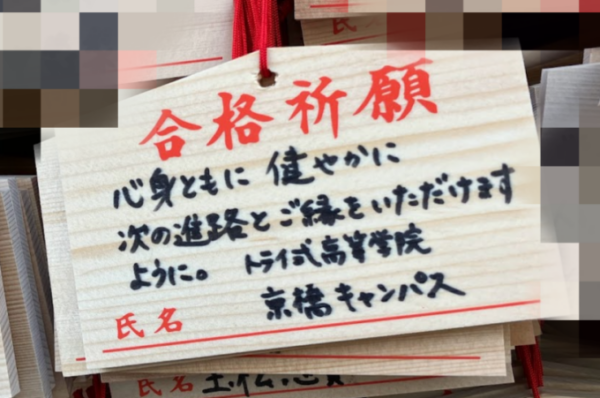 合格祈願
心身ともに 健やかに
次の進路とご縁をいただけます
ように。 トライ式高等学院
京橋キャンパス
氏名
氏名